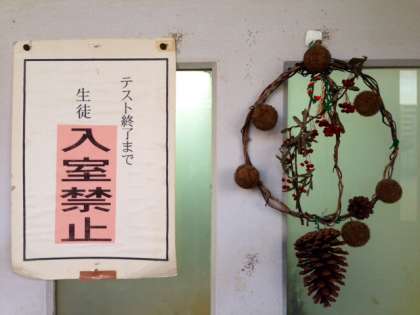 テスト終了まで
生徒
入室禁止